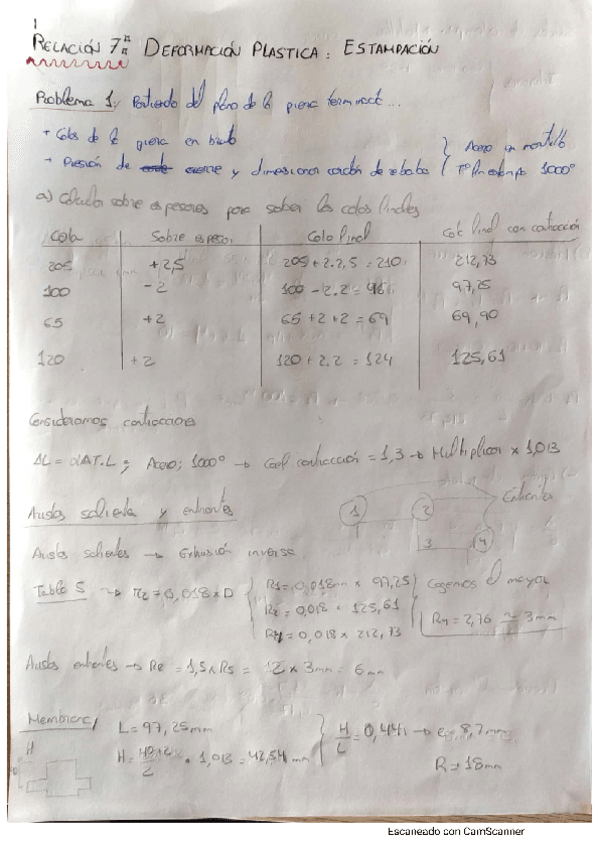 1
RELACIÓN 7ª DEFORMACIÓN PLASTICA: ESTAMPACIÓN
Problema 1, Partiendo del plano de la pieza terminada...
+ Cotas de la pieza en bruto
- Presión de cierre y dimensionar cordón de rebaba
Acero en martillo
Tª 1000º
a) Calcular sobre espesores para saber las cotas finales
Cota Sobre espesor Cota final Cota final con contracción
205 +2,5 205+2·2,5=210 212,73
100 -2 100-2·2=96 97,25
65 +2 65+2+2=69 69,90
120 +2 120+2·2=124 125,61
Consideramos contracciones
ΔL = αΔT·L; Acero; 1000º → Coef contracción = 1,3 → Multiplicar × 1,013
Aristas salientes y entrantes
1 2 3 4
Aristas salientes → Extrusión inversa
Tabla 5 → r2=0,018×D
R1=0,018mm × 97,25
R2=0,018 × 125,61
R4=0,018 × 212,73
Cogemos el mayor
R4=2,76 ≃ 3mm
Aristas entrantes → Re = 1,5×Rs = 3mm = 6mm
Membrana, L=97,25mm
H
H = · 1,013=42,54 mm
H/L=0,441 → e=8,7mm
R=18mm
Escaneado con CamScanner